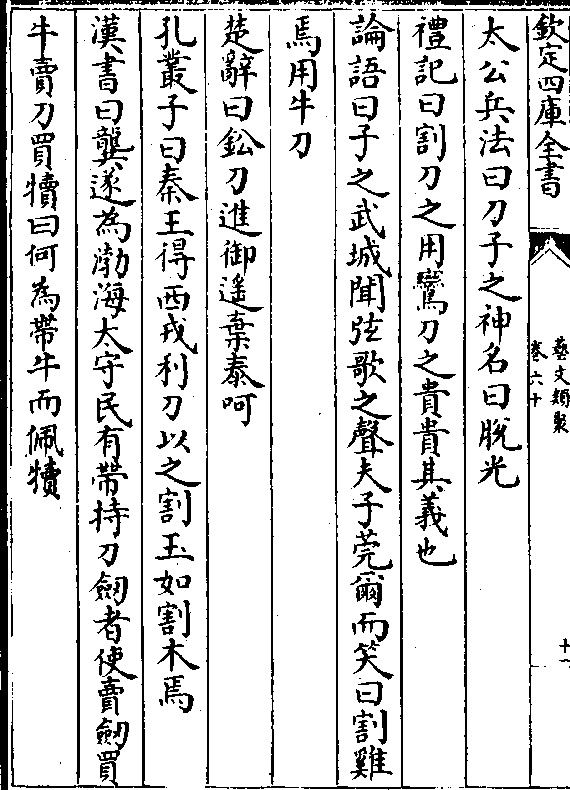 欽定四庫全書
藝文類聚
卷六十
十一
太公兵法曰刀子之神名曰脫光
禮記曰割刀之用鸞刀之貴貴其義也
論語曰子之武城聞弦歌之聲夫子莞爾而笑曰割雞
焉用牛刀
楚辭曰鈆刀進御遙棄泰呵
孔叢子曰秦王得西戎利刀以之割玉如割木焉
漢書曰龔遂為渤海太守民有帶持刀劒者使賣劒買
牛賣刀買犢曰何為帶牛而佩犢